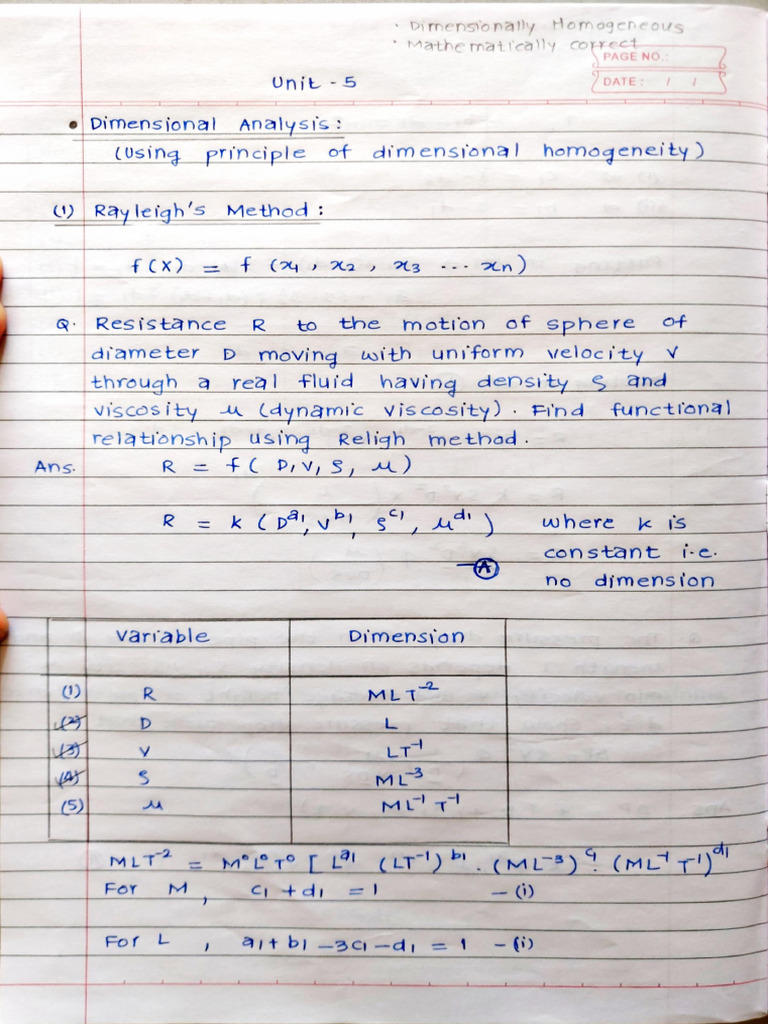 · Dimensionally Homogeneous
· Mathematically correct
PAGE NO.:
DATE: / /
Unit - 5
• Dimensional Analysis:
(Using principle of dimensional homogeneity)
(1) Rayleigh's Method:
f(X) = f (x1, x2, x3 ... xn)
Q. Resistance R to the motion of sphere of
diameter D moving with uniform velocity V
through a real fluid having density ρ and
viscosity μ (dynamic viscosity). Find functional
relationship using Religh method.
Ans. R = f( D, V, ρ, μ)
R = k (D^a1, V^b1, ρ^c1, μ^d1) where k is
constant i.e.
—Ⓐ
no dimension
Variable Dimension
(1) R MLT⁻²
(2) D L
(3) V LT⁻¹
(4) ρ ML⁻³
(5) μ ML⁻¹ T⁻¹
MLT⁻² = M⁰L⁰T⁰ [ L^a1 (LT⁻¹)^b1 . (ML⁻³)^c1 . (ML⁻¹ T⁻¹)^d1
For M, c1 + d1 = 1 — (i)
For L , a1 + b1 - 3c1 - d1 = 1 - (i)